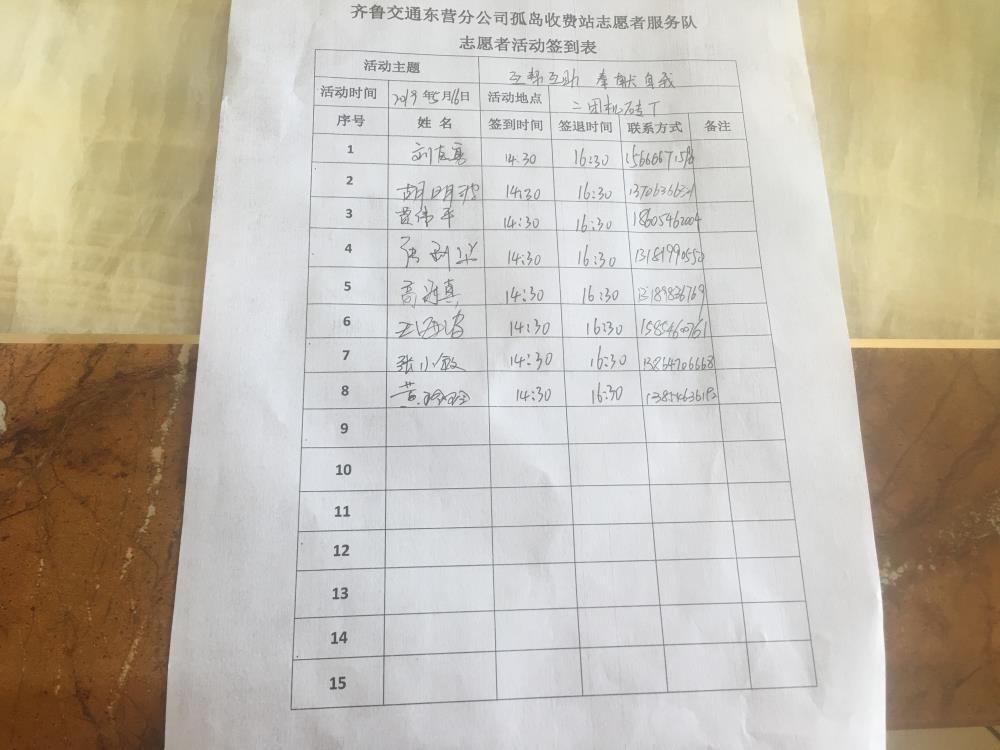 齐鲁交通东营分公司孤岛收费站志愿者服务队
志愿者活动签到表
活动主题 互帮互助 奉献自我
活动时间 2019年5月16日 活动地点 二团机砖厂
序号 姓名 签到时间 签退时间 联系方式 备注
1 刘 14:30 16:30
2 胡明 14:30 16:30
3 黄伟平 14:30 16:30 18605462004
4 张利 14:30 16:30 13181990550
5 高 真 14:30 16:30
6 王 14:30 16:30
7 张小敏 14:30 16:30 13854706668
8 黄 14:30 16:30
9
10
11
12
13
14
15